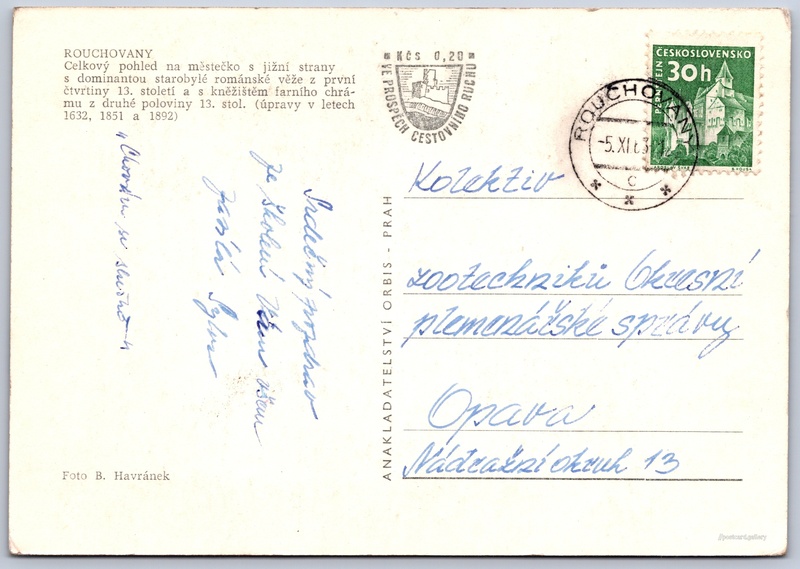 ROUCHOVANY
Celkový pohled na městečko s jižní strany
s dominantou starobylé románské věže z první
čtvrtiny 13. století a s kněžištěm farního chrá-
mu z druhé poloviny 13. stol. (úpravy v letech
1632, 1851 a 1892)
Kčs 0,20
VE PROSPĚCH CESTOVNÍHO RUCHU
ČESKOSLOVENSKO
30h
ROUCHOVANY
-5.XI.63
C
Srdečný pozdrav
ze školení Vám všem
zasílá
Kolektiv
zootechniků Okresní
plemenářské správy
Opava
Nádražní okruh 13
ANAKLADATELSTVÍ ORBIS - PRAH
Foto B. Havránek